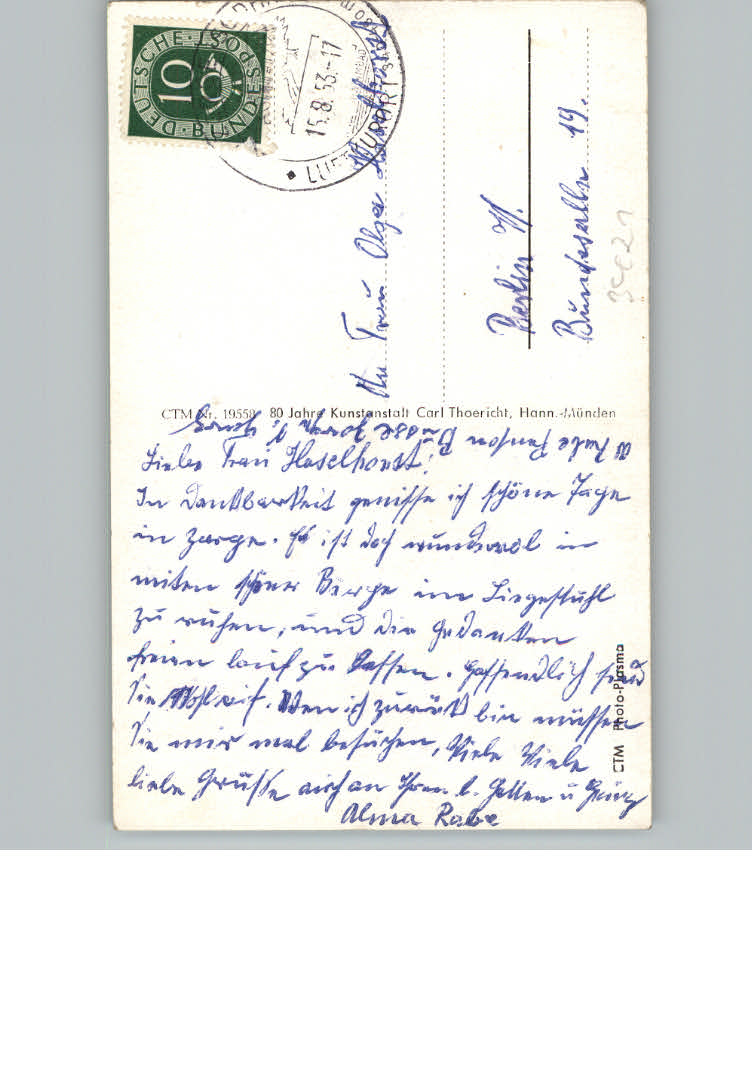 DEUTSCHE BUNDESPOST
10
15.8.53.-17
LUFTKURORT
An Frau Olga Haselhorst
Berlin W.
Bundesallee 19.
CTM Nr. 19558 80 Jahre Kunstanstalt Carl Thoericht, Hann.-Münden
Liebe Frau Haselhorst!
In Dankbarkeit genisse ich schöne Tage
in Zorge. Es ist doch wundervol in
miten schöner Berge im Liegestuhl
zu ruhen, und die Gedanken
freien lauf zu lassen. Hoffendlich sind
Sie Wohlauf. Wen ich zurück bin müssen
Sie mir mal besuchen, Viele Viele
liebe Grüsse auch an Ihren l. Gatten u
Alma Rabe
CTM Photo-Plasma